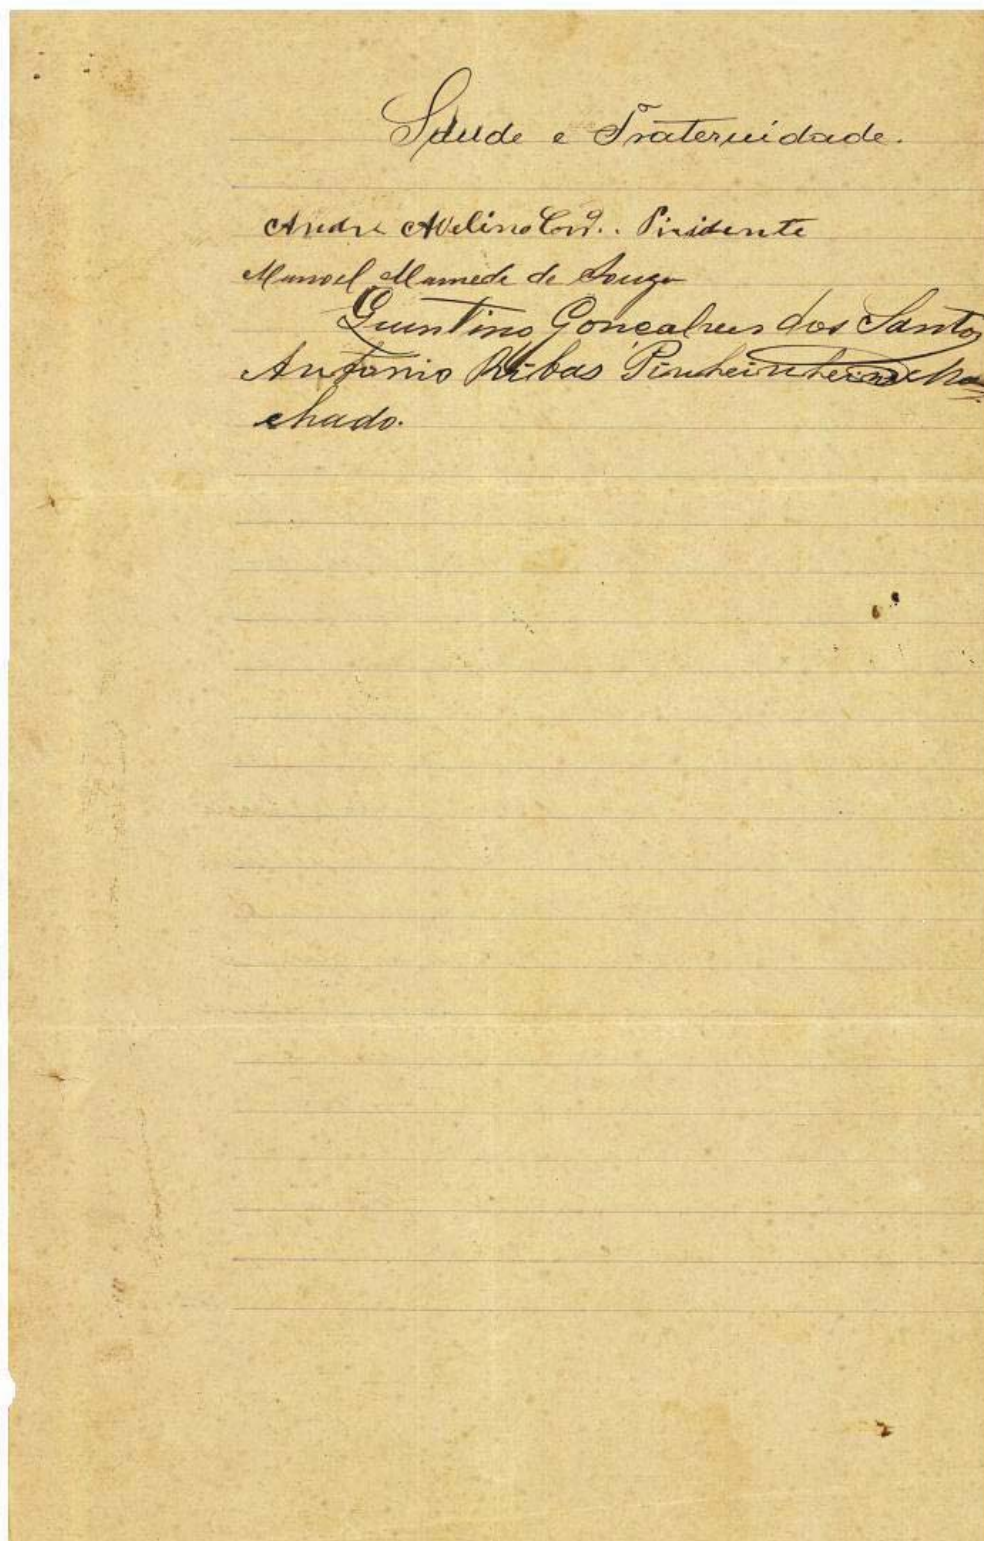 Saude e Fraternidade.
Andre Avelino Corª.. Prisidente
Manoel Mamede de Souza
Quintino Gonçalves dos Santos
Antonio Ribas Pinheinheiro Ma
chado.